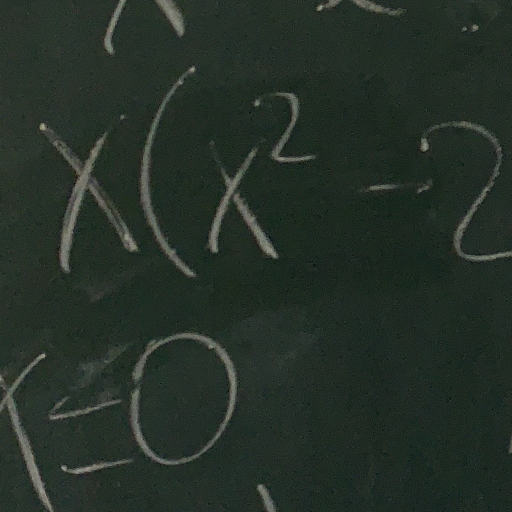 x(x² - 2
x = 0